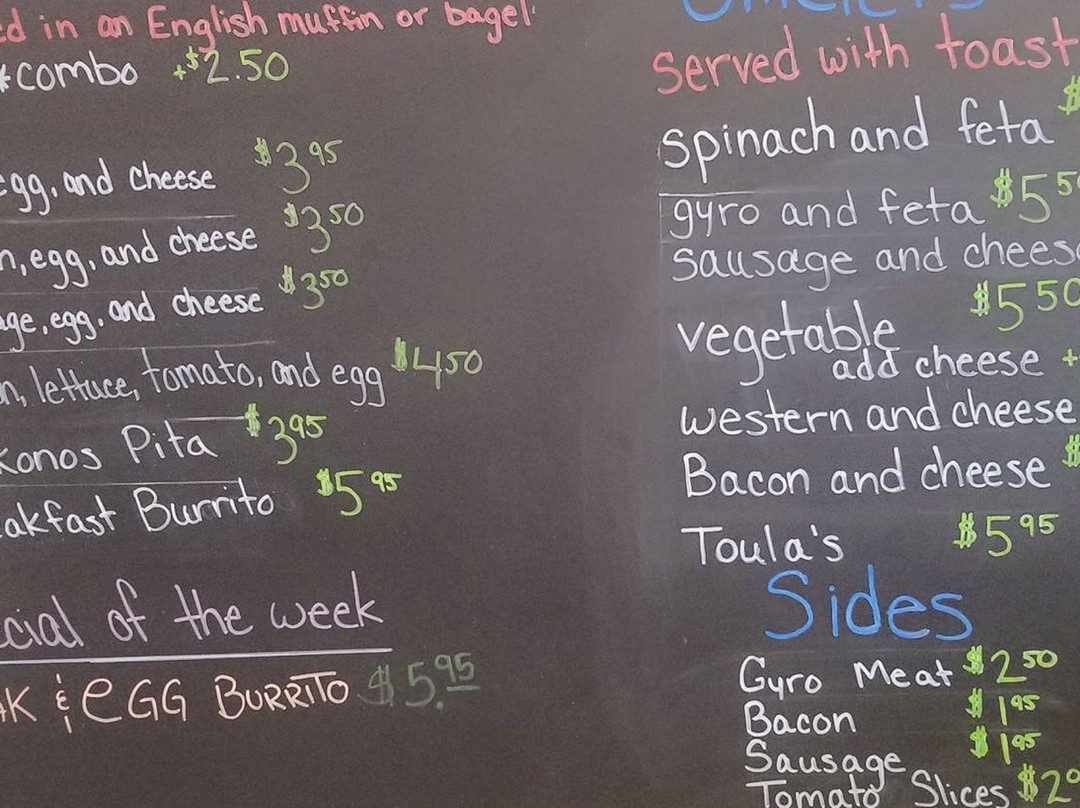 ed in an English muffin or bagel
*combo +$2.50
egg, and cheese $3.95
n, egg, and cheese $3.50
age, egg, and cheese $3.50
n, lettuce, tomato, and egg $4.50
konos Pita $3.95
eakfast Burrito $5.95
cial of the week
AK & EGG BURRITO $5.95
Omelets
served with toast
spinach and feta $
gyro and feta $5.50
sausage and cheese
vegetable $5.50
add cheese +
western and cheese
Bacon and cheese $
Toula's $5.95
Sides
Gyro Meat $2.50
Bacon $1.95
Sausage $1.95
Tomato Slices $2.0